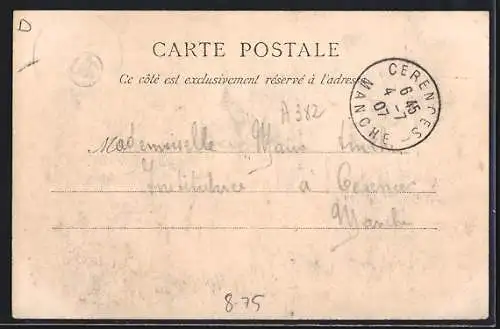 D
CARTE POSTALE
Ce côté est exclusivement réservé à l'adresse
CERENCES
6 45
4 -7
07
MANCHE
A 382
Mademoiselle Marie
Institutrice à Cérences
Manche
8-75